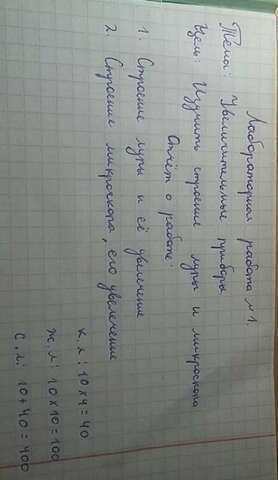 Лабораторная работа №1.
Тема: Увеличительные приборы
Цель: Изучить строение лупы и микроскопа
Отчёт о работе:
1. Строение лупы и её увеличение
2. Строение микроскопа, его увеличение
к. л: 10 х 4 = 40
ж. л: 10 х 10 = 100
с. л: 10 + 40 = 400